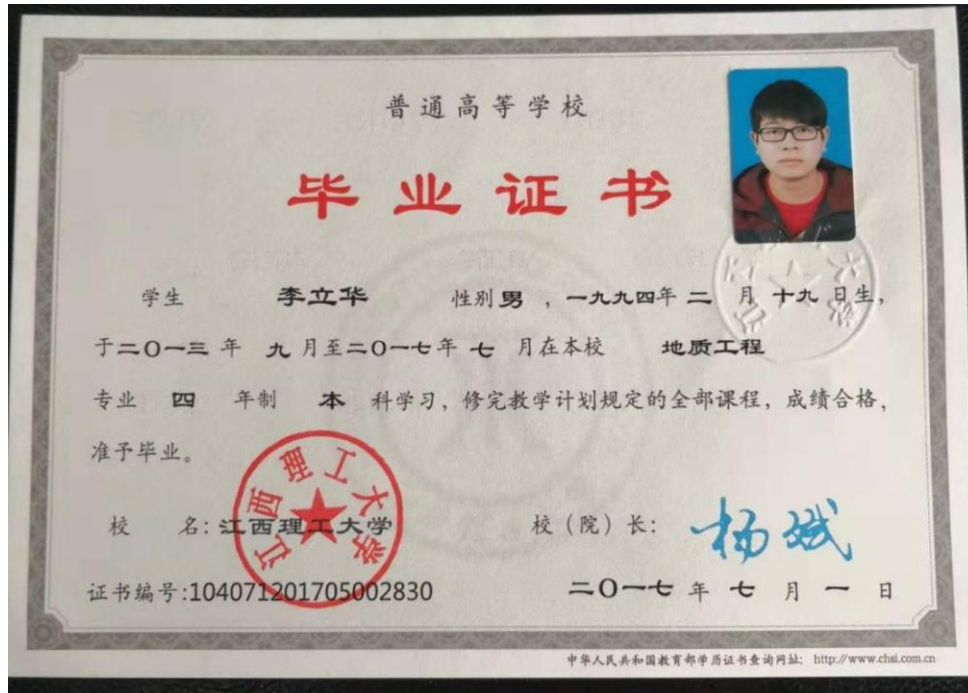 普通高等学校
毕业证书
学生 李立华 性别男，一九九四年二月十九日生，
于二〇一三年九月至二〇一七年七月在本校 地质工程
专业 四 年制 本 科学习，修完教学计划规定的全部课程，成绩合格，
准予毕业。
江西理工大学
校 名：江西理工大学 校（院）长：杨斌
证书编号:104071201705002830 二〇一七年七月一日
中华人民共和国教育部学历证书查询网址：http://www.chsi.com.cn